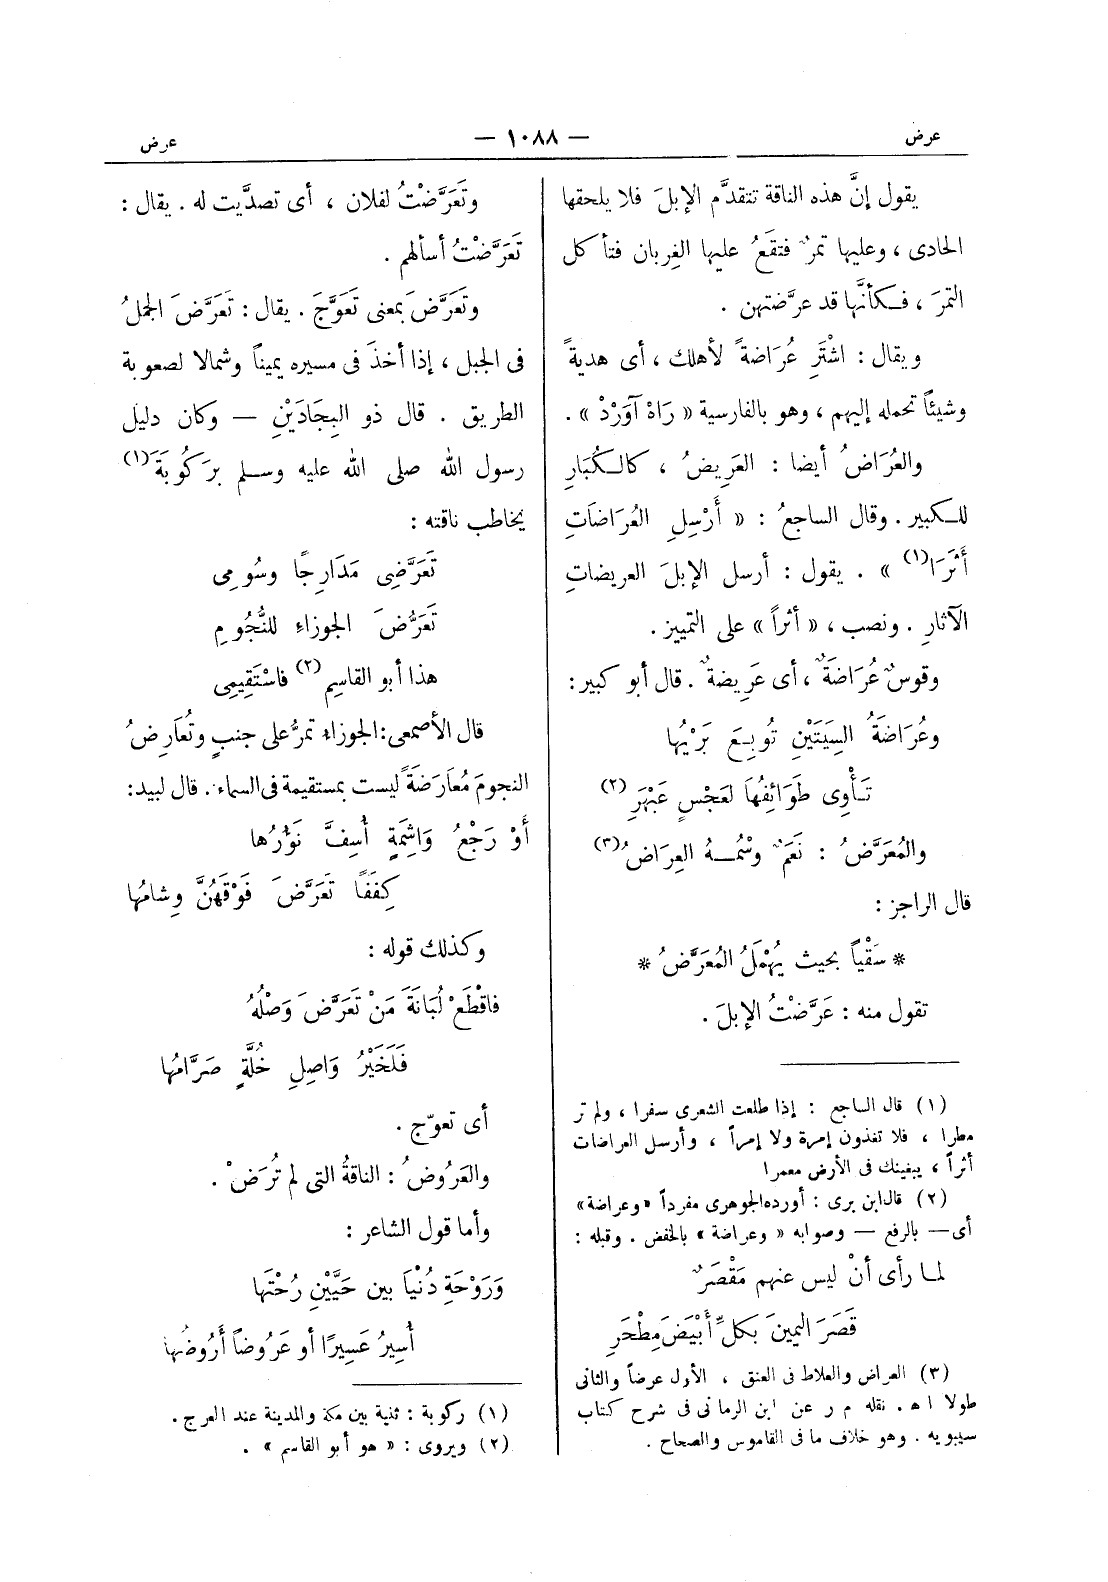 عرض
— ١٠٨٨ —
عرض
يقول إنَّ هذه الناقة تتقدَّم الإبلَ فلا يلحقها
الحادى ، وعليها تمرٌ فتقَعُ عليها الغِربان فتأكل
التمرَ ، فكأنَّها قد عرَّضتهن .
ويقال : اشْتَرِ عُرَاضةً لأهلك ، أى هديةً
وشيئاً تحمله إليهم ، وهو بالفارسية « رَاهْ آوَرْدْ » .
والعُرَاضُ أيضا : العَرِيضُ ، كالكُبَارِ
للكبير . وقال الساجعُ : « أَرْسِلِ العُرَاضَاتِ
أَثَرَا(١) » . يقول : أرسل الإبلَ العريضاتِ
الآثارِ . ونصب ، « أثراً » على التمييز .
وقوسٌ عُرَاضَةٌ ، أى عَرِيضةٌ . قال أبو كبير :
وعُرَاضَةُ السِيَتَيْنِ تُوبِعَ بَرْيُها
تَأْوِى طَوَائِفُها لعَجْسٍ عَبْهَرِ (٢)
والمُعَرَّضُ : نَعَمٌ وسْمُهُ العِرَاضُ(٣)
قال الراجز :
* سَقْياً بحيث يُهْمَلُ المُعَرَّضُ *
تقول منه : عَرَّضْتُ الإبلَ .
(١) قال الساجع : إذا طلعت الشعرى سفرا ، ولم تر
مطرا ، فلا تغذون إمرة ولا إمراً ، وأرسل العراضات
أثراً ، يبغينك فى الأرض معمرا
(٢) قال ابن برى : أورده الجوهرى مفرداً «وعراضة»
أى — بالرفع — وصوابه « وعراضة » بالخفض . وقبله :
لما رأى أنْ ليس عنهم مَقْصَرٌ
قَصَرَ اليمينَ بكلِّ أَبْيَضَ مِطْحَرِ
(٣) العراض والعلاط فى العنق ، الأول عرضاً والثانى
طولا اه . نقله م ر عن ابن الرمانى فى شرح كتاب
سيبويه . وهو خلاف ما فى القاموس والصحاح .
وتَعَرَّضْتُ لفلان ، أى تصدَّيت له . يقال :
تَعَرَّضْتُ أسألهم .
وتَعَرَّضَ بمعنى تَعَوَّجَ . يقال : تَعَرَّضَ الجملُ
فى الجبل ، إذا أخذَ فى مسيره يميناً وشمالا لصعوبة
الطريق . قال ذو البِجَادَيْنِ — وكان دليل
رسول الله صلى الله عليه وسلم برَكُوبَةَ(١)
يخاطب ناقته :
تَعَرَّضِى مَدَارِجًا وسُومِى
تَعَرُّضَ الجوزاءِ للنُّجُومِ
هذا أبو القاسِمِ(٢) فاسْتَقِيمِى
قال الأصمعى : الجوزاء تمرُّ على جنبٍ وتُعَارِضُ
النجومَ مُعَارَضَةً ليست بمستقيمة فى السماء . قال لبيد :
أَوْ رَجْعُ وَاشِمَةٍ أُسِفَّ نَؤُرُها
كِفَفًا تَعَرَّضَ فَوْقَهُنَّ وِشامُها
وكذلك قوله :
فاقْطَعْ لُبَانَةَ مَنْ تَعَرَّضَ وَصْلُهُ
فَلَخَيْرُ وَاصِلِ خُلَّةٍ صَرَّامُها
أى تعوّج .
والعَرُوضُ : الناقةُ التى لم تُرَضْ .
وأما قول الشاعر :
وَرَوْحَةِ دُنْيَا بين حَيَّيْنِ رُحْتَها
أُسِيرُ عَسِيرًا أو عَرُوضاً أَرُوضُها
(١) ركوبة : ثنية بين مكة والمدينة عند العرج .
(٢) ويروى : « هو أبو القاسم » .